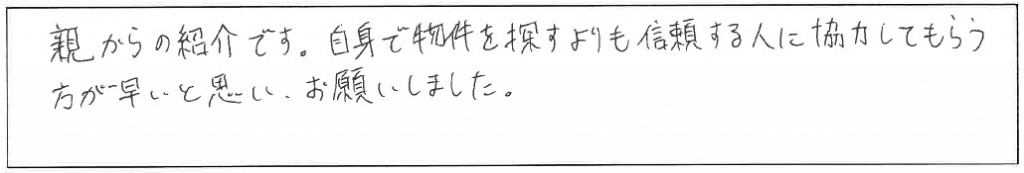 親からの紹介です。自身で物件を探すよりも信頼する人に協力してもらう
方が早いと思い、お願いしました。